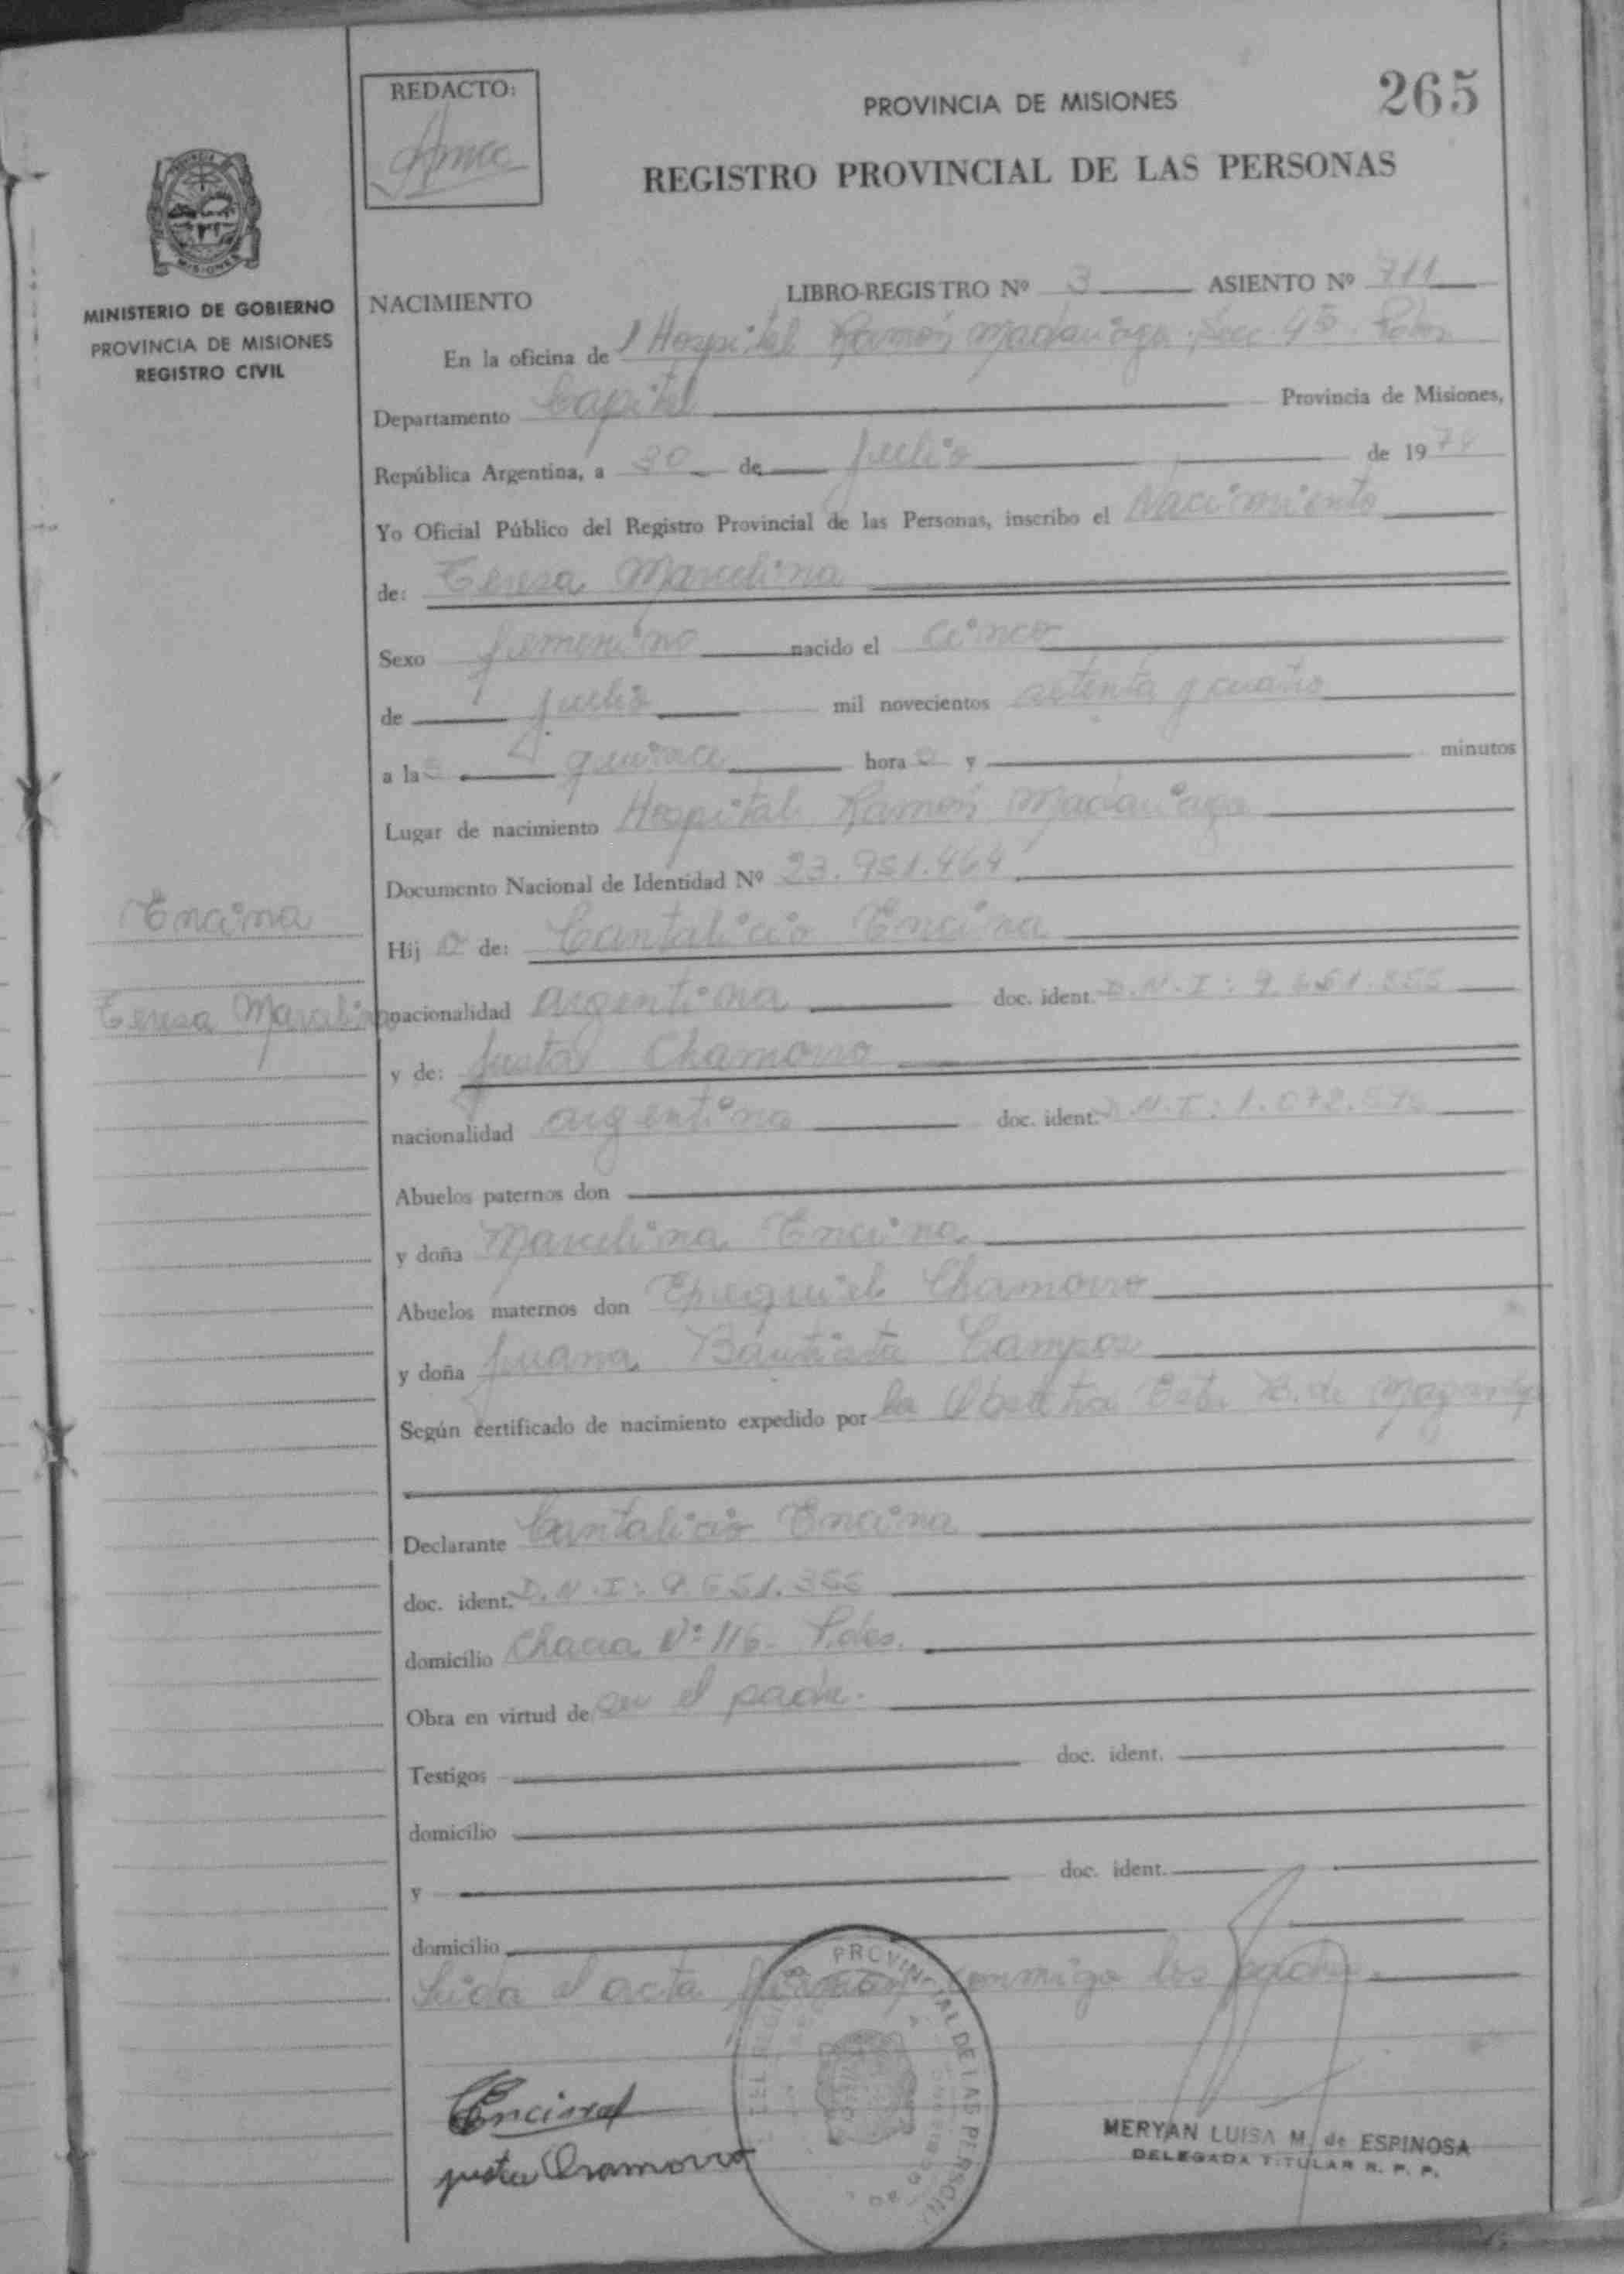 REDACTO:
PROVINCIA DE MISIONES
265
REGISTRO PROVINCIAL DE LAS PERSONAS
MISIONES
MINISTERIO DE GOBIERNO
PROVINCIA DE MISIONES
REGISTRO CIVIL
NACIMIENTO LIBRO-REGISTRO Nº 3 ASIENTO Nº 711
En la oficina de Hospital Ramón Madariaga
Departamento Capital Provincia de Misiones,
República Argentina, a 30 de Julio de 1974
Yo Oficial Público del Registro Provincial de las Personas, inscribo el Nacimiento
de: Teresa Marcelina
Sexo femenino nacido el cinco
de julio mil novecientos setenta y cuatro
a las quince horas y minutos
Lugar de nacimiento Hospital Ramón Madariaga
Documento Nacional de Identidad Nº 23.951.464
Encina
Hija de: Cantalicio Encina
Teresa Marcelina
nacionalidad argentina doc. ident. D.N.I:
y de: Justa Chamorro
nacionalidad argentina doc. ident. D.N.I: 1.072.
Abuelos paternos don
y doña Marcelina Encina
Abuelos maternos don Chamorro
y doña Juana Bautista Campos
Según certificado de nacimiento expedido por la Obstetra
Declarante Cantalicio Encina
doc. ident. D.N.I: 9.651.355
domicilio Chacra Nº 116- Pdas.
Obra en virtud de ser el padre.
Testigos doc. ident.
domicilio
y doc. ident.
domicilio
Leida el acta firman conmigo los padres.
PROVINCIAL DE LAS PERSON
Encina
justa Chamorro
MERYAN LUISA M. de ESPINOSA
DELEGADA TITULAR R. P. P.